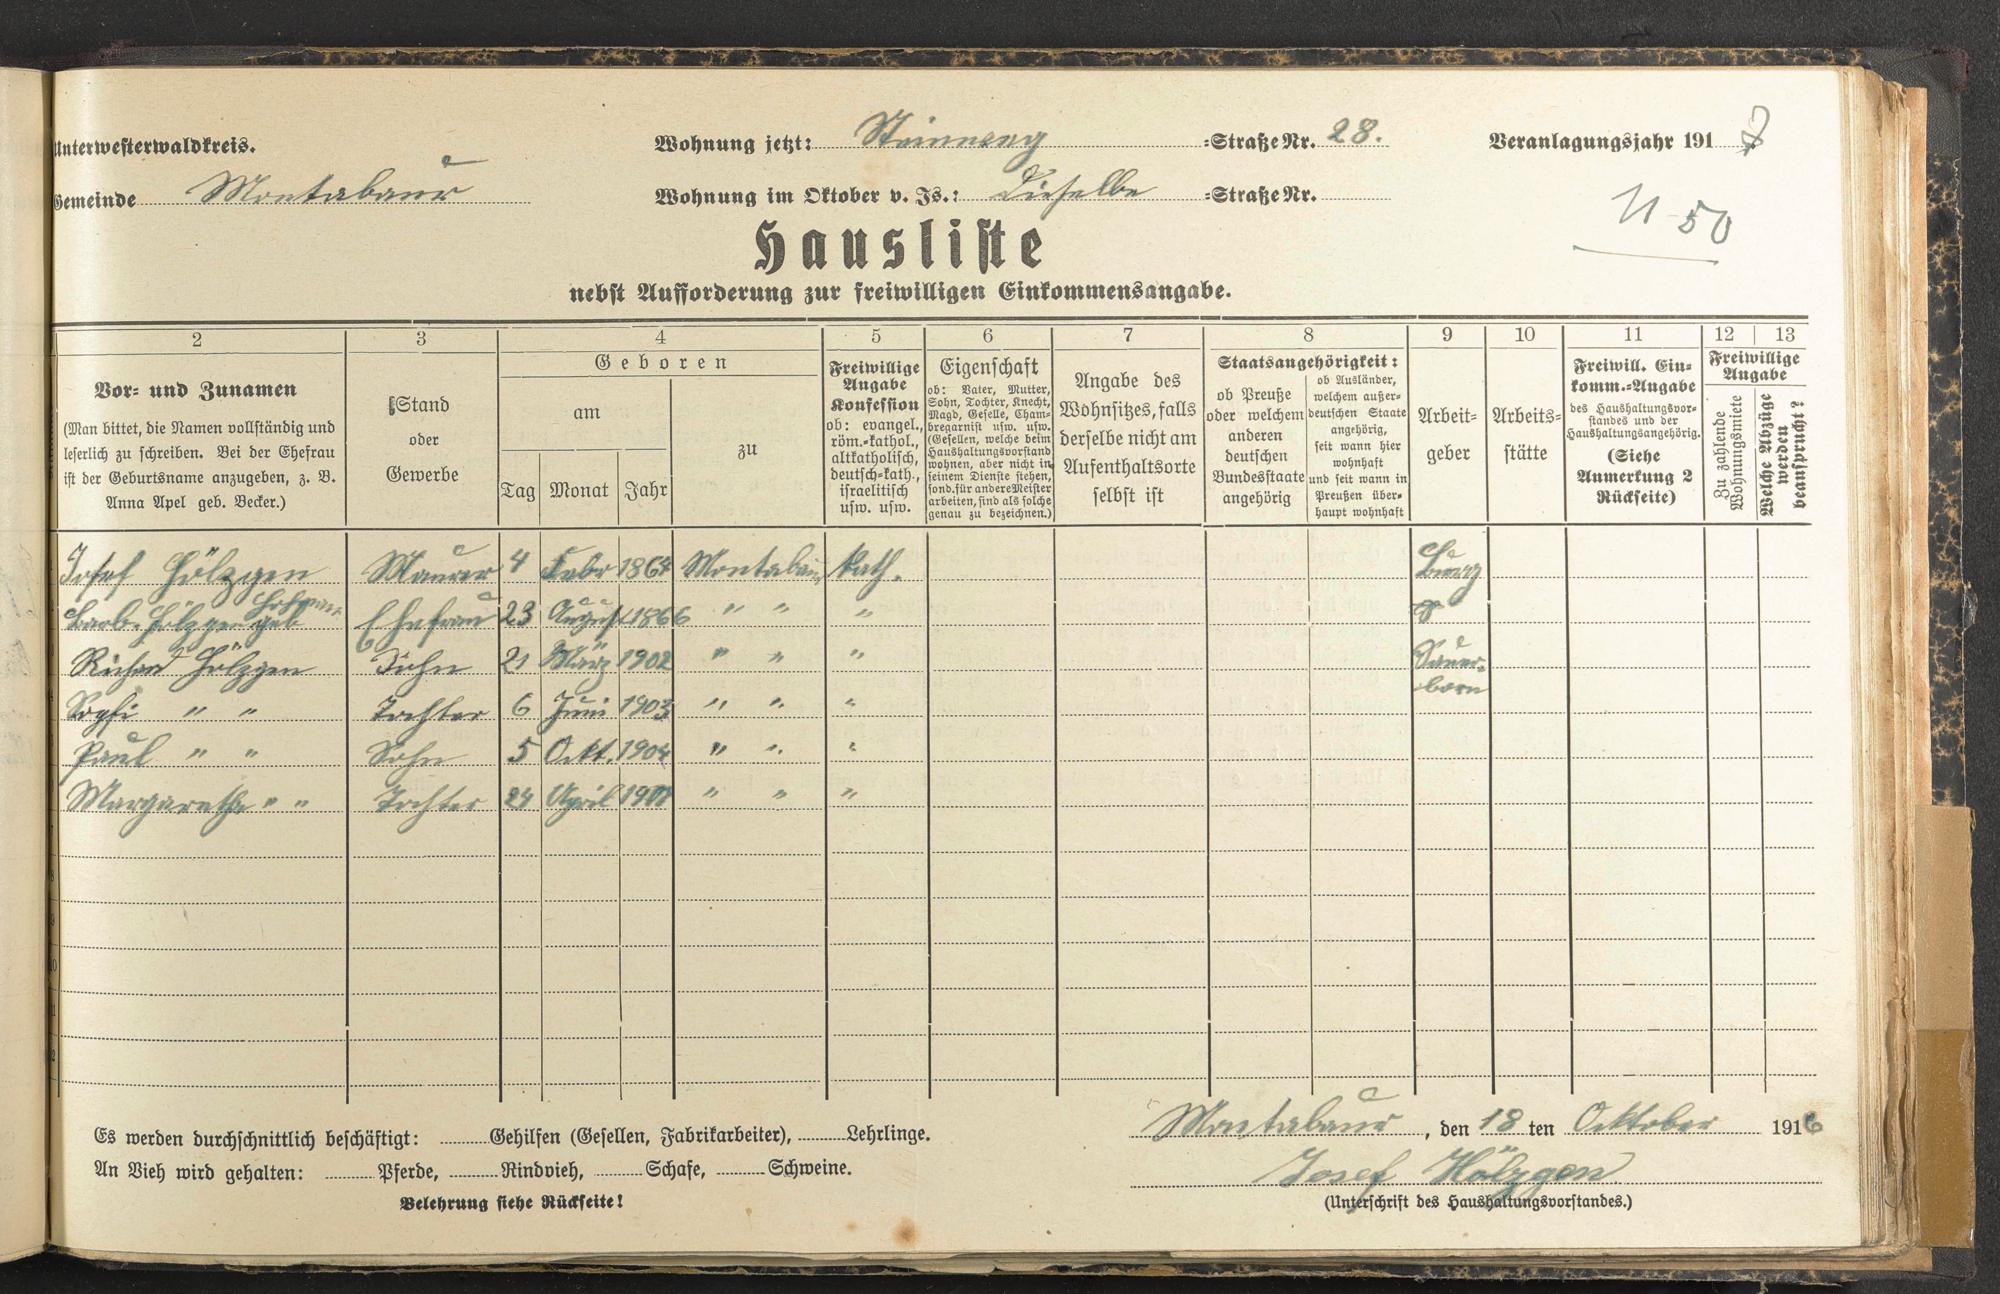 Unterwesterwaldkreis. Wohnung jetzt: Steinweg =Straße Nr. 28. Veranlagungsjahr 1917
Gemeinde Montabaur Wohnung im Oktober v. Js.: Dieselbe =Straße Nr.
50
Hausliste
nebst Aufforderung zur freiwilligen Einkommensangabe.
2 3 4 5 6 7 8 9 10 11 12 13
Vor- und Zunamen
(Man bittet, die Namen vollständig und
leserlich zu schreiben. Bei der Ehefrau
ist der Geburtsname anzugeben, z. B.
Anna Apel geb. Becker.)
Stand
oder
Gewerbe
Geboren
am
Tag Monat Jahr
zu
Freiwillige
Angabe
Konfession
ob: evangel.,
röm.=kathol.,
altkatholisch,
deutsch=kath.,
israelitisch
usw. usw.
Eigenschaft
ob: Vater, Mutter,
Sohn, Tochter, Knecht,
Magd, Geselle, Cham-
bregarnist usw. usw.
(Gesellen, welche beim
Haushaltungsvorstand
wohnen, aber nicht in
seinem Dienste stehen,
sond. für andere Meister
arbeiten, sind als solche
genau zu bezeichnen.)
Angabe des
Wohnsitzes, falls
derselbe nicht am
Aufenthaltsorte
selbst ist
Staatsangehörigkeit:
ob Preuße
oder welchem
anderen
deutschen
Bundesstaate
angehörig
ob Ausländer,
welchem außer-
deutschen Staate
angehörig,
seit wann hier
wohnhaft
und seit wann in
Preußen über-
haupt wohnhaft
Arbeit=
geber
Arbeits=
stätte
Freiwill. Ein-
komm.=Angabe
des Haushaltungsvor-
standes und der
Haushaltungsangehörig.
(Siehe
Anmerkung 2
Rückseite)
Freiwillige
Angabe
Zu zahlende
Wohnungsmiete
Welche Abzüge
werden
beansprucht?
Josef Hölzgen Maurer 4 Febr 1864 Montabaur kath. Burg
Barb. Hölzgen geb Ehefrau 23 August 1866 " " "
Richard Hölzgen Sohn 21 März 1902 " " " Sauer-
born
Sophi " " Tochter 6 Juni 1903 " " "
Paul " " Sohn 5 Okt. 1904 " " "
Margarethe " " Tochter 24 April " " "
Es werden durchschnittlich beschäftigt: Gehilfen (Gesellen, Fabrikarbeiter), Lehrlinge.
An Vieh wird gehalten: Pferde, Rindvieh, Schafe, Schweine.
Belehrung siehe Rückseite!
Montabaur, den 18 ten Oktober 1916
Josef Hölzgen
(Unterschrift des Haushaltungsvorstandes.)